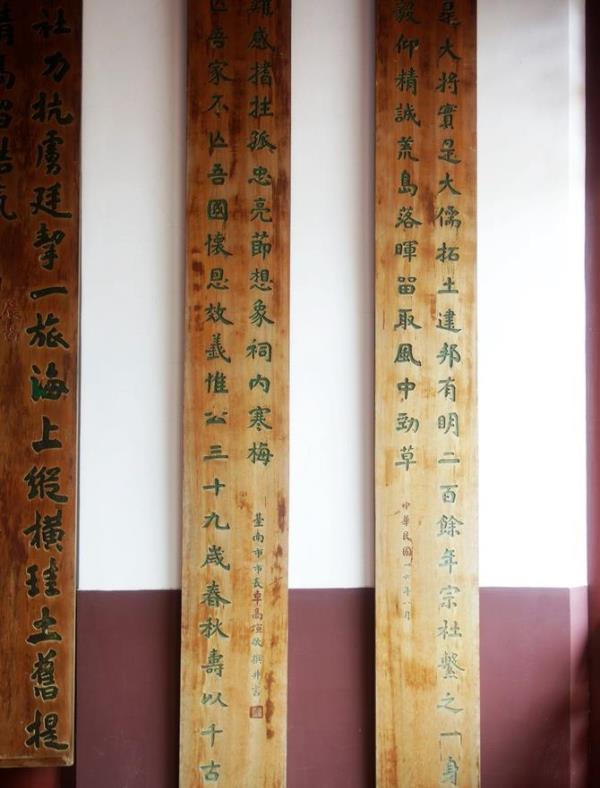 是大將實是大儒拓土建邦有明二百餘年宗社繫之一身
毅仰精誠荒島落暉留取風中勁草
中華民國
亡吾家不亡吾國懷恩效義惟公三十九歲春秋壽以千古
難感搘拄孤忠亮節想象祠內寒梅
臺南市市長卓高煊敬撰并書
社力抗虜廷挈一旅海上縱橫珪土舊提